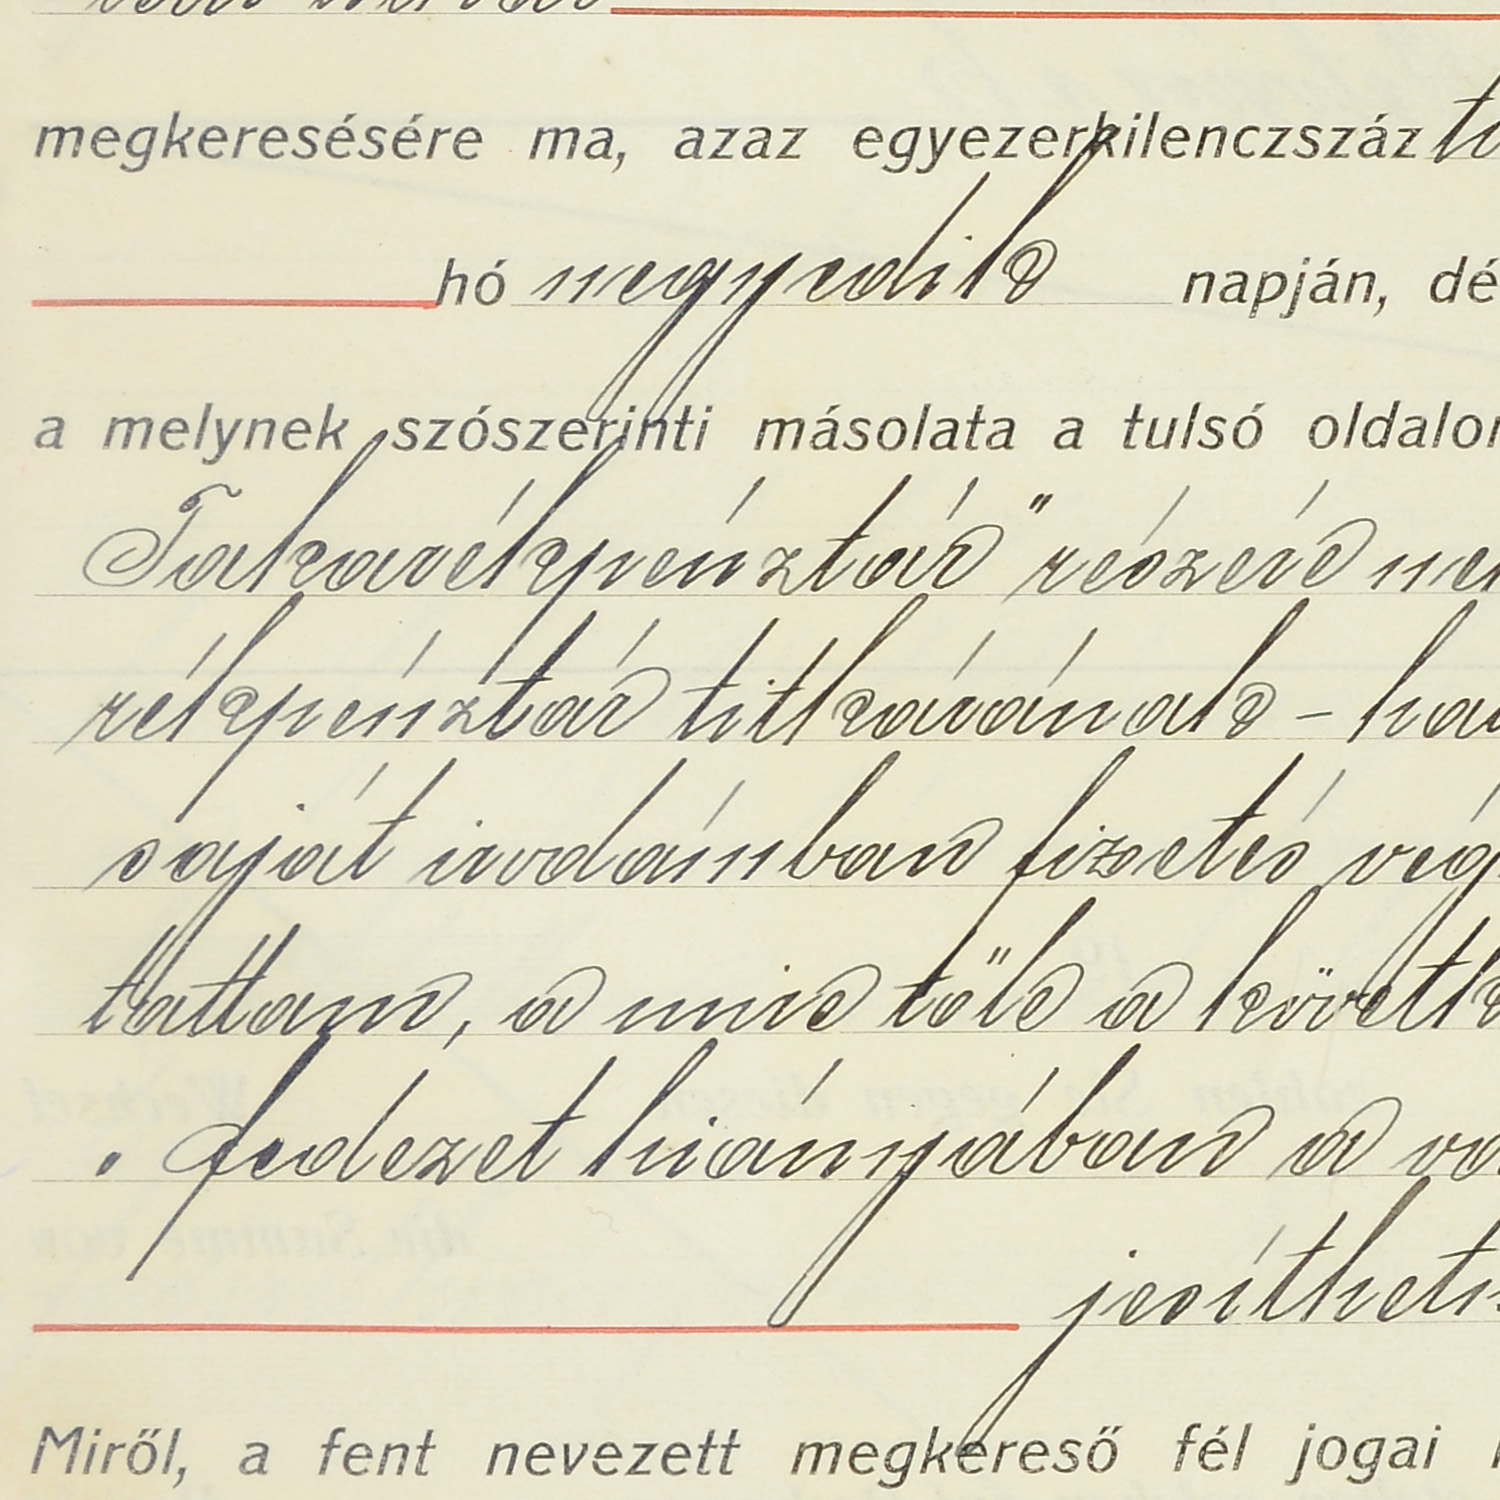 megkeresésére ma, azaz egyezerkilenczszáz
hó negyedik napján, dé
a melynek szószerinti másolata a tulsó oldalon
Takarékpénztár" részére
rékpénztár titkárának –
saját irodámban fizetés vég
tattam, a mire tőle a követk
fedezet hiányában a
jesíthet
Miről, a fent nevezett megkereső fél jogai